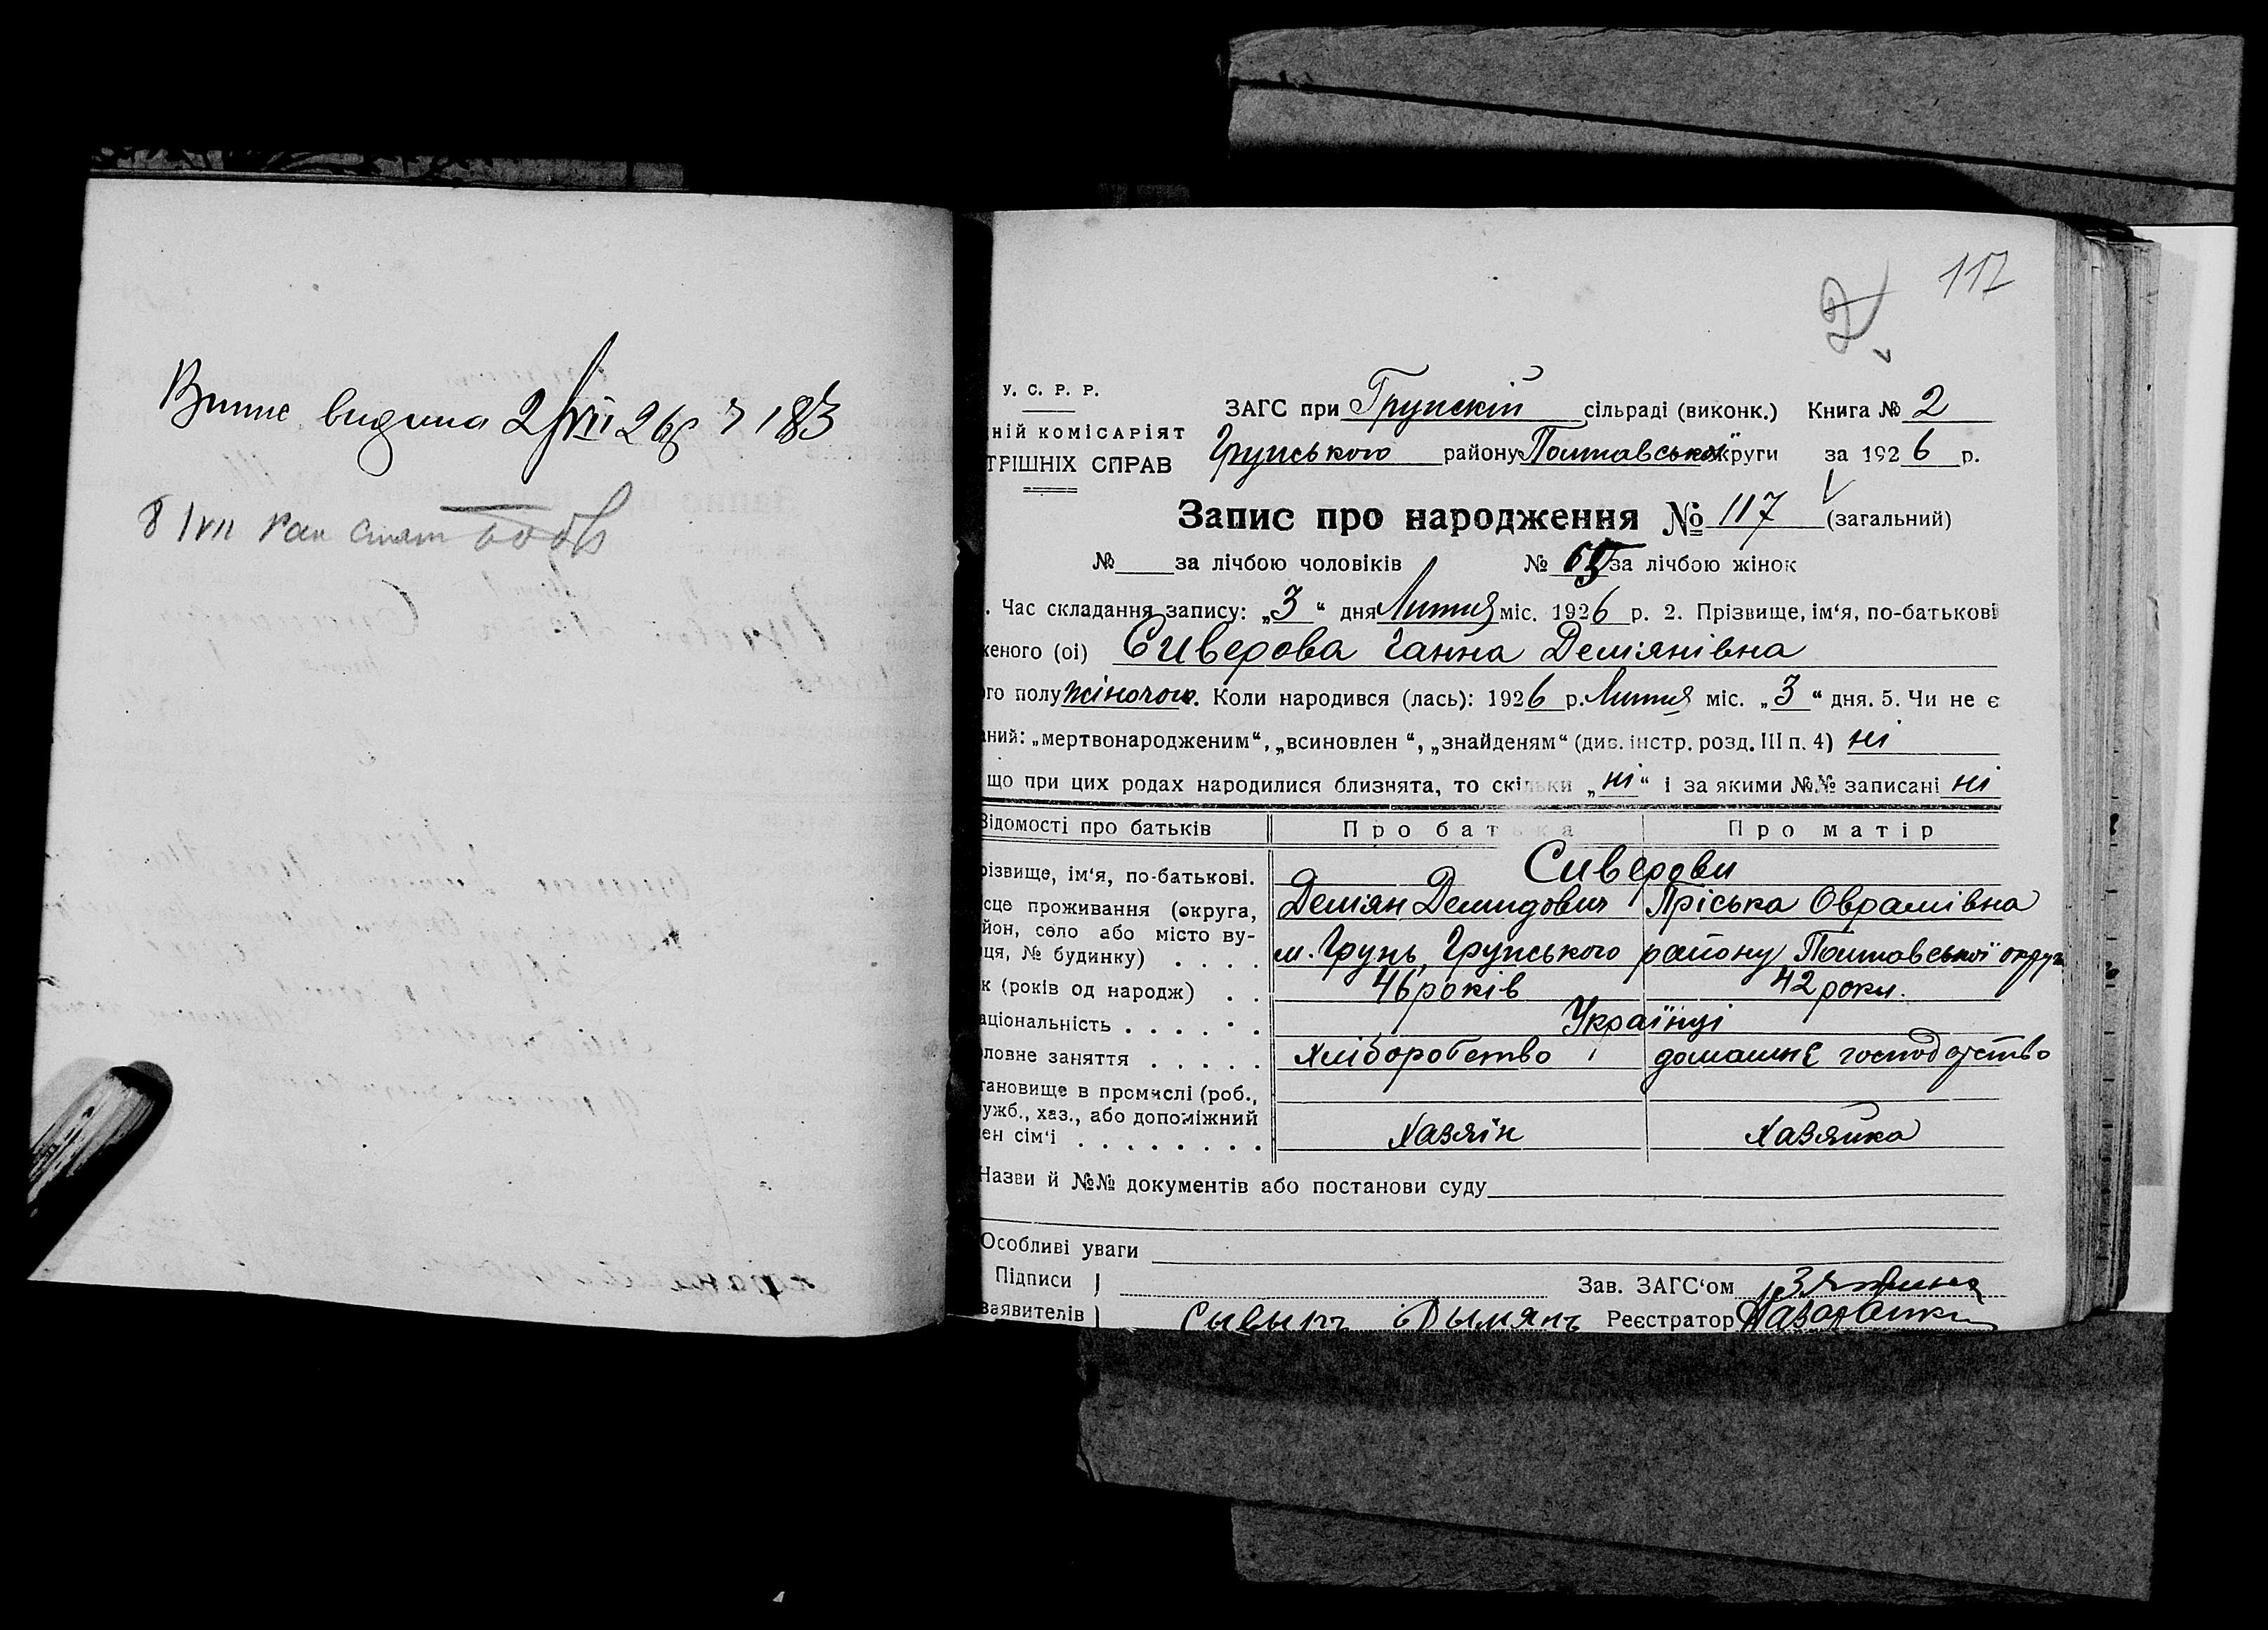 Випис видана 2/VII 26 р 183
8/VII
117
У. С. Р. Р.
ЗАГС при Грунскій сільраді (виконк.) Книга № 2
ній КОМІСАРІЯТ
ТРІШНІХ СПРАВ
Грунського району Полтавської округи за 1926 р.
Запис про народження № 117 (загальний)
№ за лічбою чоловіків № 65 за лічбою жінок
. Час складання запису: „3“ дня Липня міс. 1926 р. 2. Прізвище, ім‘я, по-батькові
женого (оі) Сиверова Ганна Демянівна
ого полу жіночого. Коли народився (лась): 1926 р. Липня міс. „3“ дня. 5. Чи не є
аний: „мертвонародженим“, „всиновлен “, „знайденям“ (див. інстр. розд. III п. 4) ні
що при цих родах народилися близнята, то скільки „ні“ і за якими №№ записані ні
Відомості про батьків Про батька Про матір
різвище, ім‘я, по-батькові. Сиверови
Демян Демидович Пріська Оврамівна
сце проживання (округа,
йон, село або місто ву-
ця, № будинку) . . . . м. Грунь, Грунського району Полтавської округи
к (років од народж) . . 46 років 42 роки.
аціональність . . . . . . Українці
ловне заняття . . . . . хліборобство домашнє господарство
тановище в промислі (роб.,
ужб., хаз., або допоміжний
ен сім‘і . . . . . . . . Хазяїн Хазяйка
Назви й №№ документів або постанови суду
Особливі уваги
Підписи ) Зав. ЗАГС‘ом
заявителів ) Сывыръ Дымянъ Реєстратор